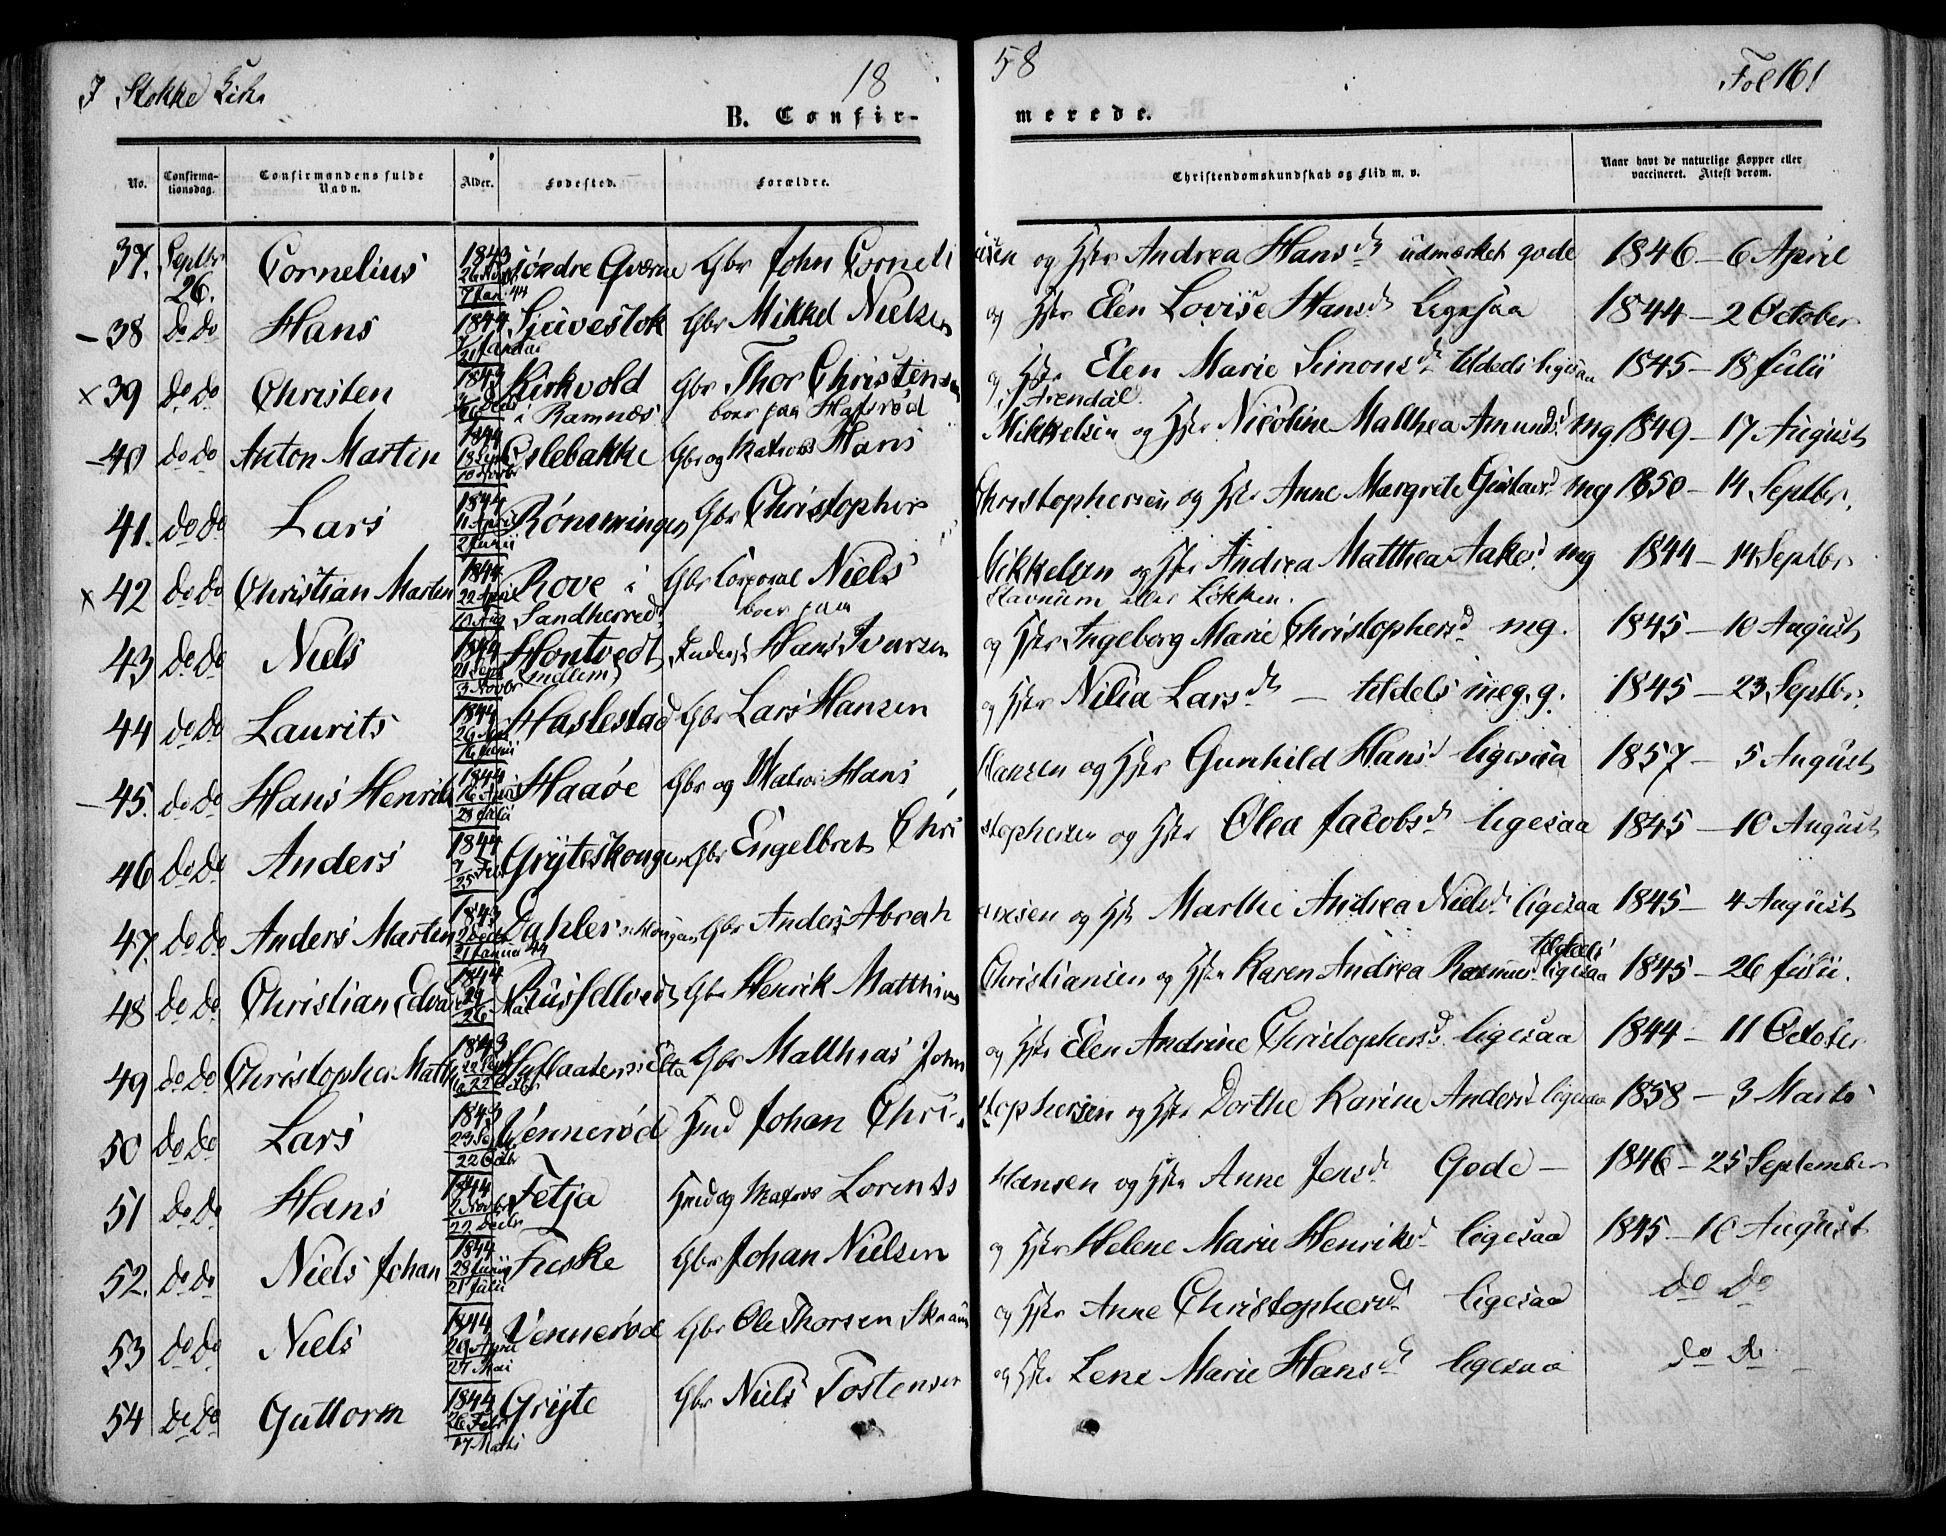 I Stokke Kirk
18
58
Fol 161
B. Confir-
merede.
No.
Confirma-
tionsdag.
Confirmandens fulde
Navn.
Alder.
Fødested.
Forældre.
Christendomskundskab og Flid m. v.
Naar havt de naturlige Kopper eller
vaccineret. Attest derom.
37. Septbr 26. Cornelius 1843 7 Jan. 44 Søndre Gbr John Corneli og Andrea Hansd udmærket gode 1846 – 6 April
– 38 do do Hans 1844 Sjuvestok Gbr Mikkel Nielsen og Elen Lovise Hansd ligesaa 1844 – 2 October
x 39 do do Christen Kirkvold i Ramnæs Gbr Thor Christensen boer paa og Elen Marie Simonsd tildeels ligesaa 1845 – 18 Julii
i Arendal.
– 40 do do Anton Martin 1844 18 Sept Eslebakke Gbr og Matros Hans Mikkelsen og Nicoline Matthea Amunds mg 1849 – 17 August
41. do do Lars 1844 11 April 2 Junii Rønningen Gbr Christopher Christophersen og Anne Margrete mg 1850 – 14 Septbr.
x 42 do do Christian Martin 1844 22 April 10 Aug Rove i Sandherred Gbr Corporal Niels boer paa Mikkelsen og Andrea Matthea Aakes mg 1844 – 14 Septbr
eller Løkken.
43 do do Niels 1844 21 Sept 3 Novbr Hontvedt (mellem) Hans Iversen og Ingeborg Marie Christophersd mg. 1845 – 10 August
44 do do Laurits 1844 16 Junii Haslestad Gbr Lars Hansen og Nilia Larsd – tildels meg. g. 1845 – 23 Septbr.
– 45. do do Hans Henrik 1844 28 Julii Haaøe Gbr og Matros Hans Hansen og Gunhild Hans ligesaa 1857 – 5 August
46 do do Anders 1844 25 Gryteskougen Gbr Engelbret Chri stophersen og Olea Jacobsd ligesaa 1845 – 10 August
47. do do Anders Martin 1843 2 Decbr 21 Januar 44 Gbr Anders Abrah amsen og Marthe Andrea Nielsd ligesaa 1845 – 4 August
48 do do Christian Edvard 1844 26 Mai Gbr Henrik Matthias Christiansen og Karen Andrea Rasmus tildeels ligesaa 1845 – 26 Julii.
49 do do Christopher Math 1843 22 Octbr Gbr Matthias John og Elen Andrine Christophersd ligesaa 1844 – 11 October
50 do do Lars 1843 22 Octbr Vennerød Hmd Johan Chri- stophersen og Dorthe Karine Anders ligesaa 1858 – 3 Marts
51 do do Hans 1844 2 Novbr 22 Decbr Fetja Hmd og Matros Lorents Hansen og Anne Jensd Gode – 1846 – 25 September
52. do do Niels Johan 1844 28 Junii 21 Julii Feske Gbr Johan Nielsen og Helene Marie Henriksd ligesaa 1845 – 10 August
53 do do Niels 1844 20 April 27 Mai Vennerød Gbr Ole Thorsen og Anne Christophersd ligesaa do do
54 do do Guttorm 1844 26 Febr 17 Marts Gryte Gbr Niels Tostensen og Lene Marie Hansd ligesaa do do